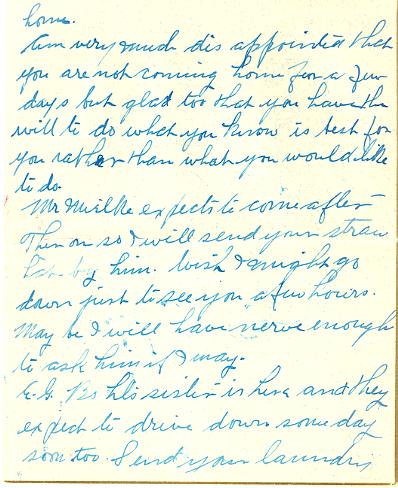 home.
Am very much dis appointed that
you are not coming home for a few
days but glad too that you have the
will to do what you know is best for
you rather than what you would like
to do.
Mr Mielke expects to come after
so I will send your straw
hat by him. Wish I might go
down just to see you a few hours.
May be I will have nerve enough
to ask him if I may.
E. G. sister is here and they
expect to drive down some day
soon too. Send your laundry